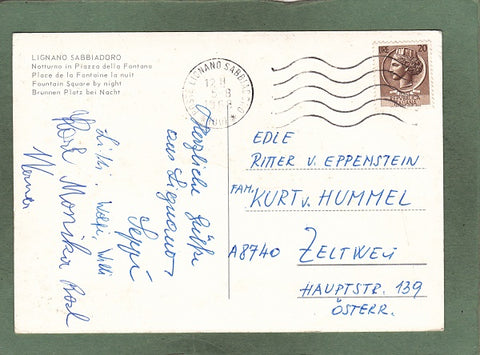 LIGNANO SABBIADORO
Notturno in Piazza della Fontana
Place de la Fontaine la nuit
Fountain Square by night
Brunnen Platz bei Nacht
LIGNANO SABBIADORO
LIRE 20
Herzliche Grüße
aus Lignano
Seppi
Willi
Monika
Werner
EDLE
RITTER v. EPPENSTEIN
FAM. KURT v. HUMMEL
A8740 ZELTWEG
HAUPTSTR. 139
ÖSTERR.